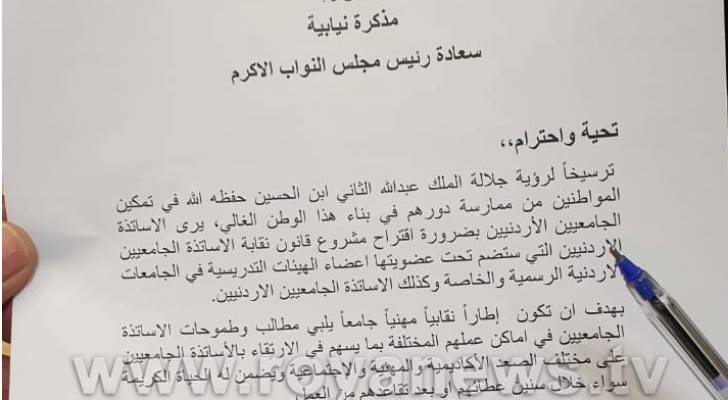 مذكرة نيابية
سعادة رئيس مجلس النواب الاكرم
تحية واحترام،،
ترسيخاً لرؤية جلالة الملك عبدالله الثاني ابن الحسين حفظه الله في تمكين
المواطنين من ممارسة دورهم في بناء هذا الوطن الغالي، يرى الاساتذة
الجامعيين الأردنيين بضرورة اقتراح مشروع قانون نقابة الاساتذة الجامعيين
الاردنيين التي ستضم تحت عضويتها اعضاء الهيئات التدريسية في الجامعات
الاردنية الرسمية والخاصة وكذلك الاساتذة الجامعيين الاردنيين.
بهدف ان تكون إطاراً نقابياً مهنياً جامعاً يلبي مطالب وطموحات الاساتذة
الجامعيين في اماكن عملهم المختلفة بما يسهم في الارتقاء بالأساتذة الجامعيين
على مختلف الصعد الأكاديمية والمهنية والاجتماعية ويضمن له الحياة الكريمة
سواء خلال سنين عطائهم او بعد تقاعدهم من العمل
www.royanews.tv